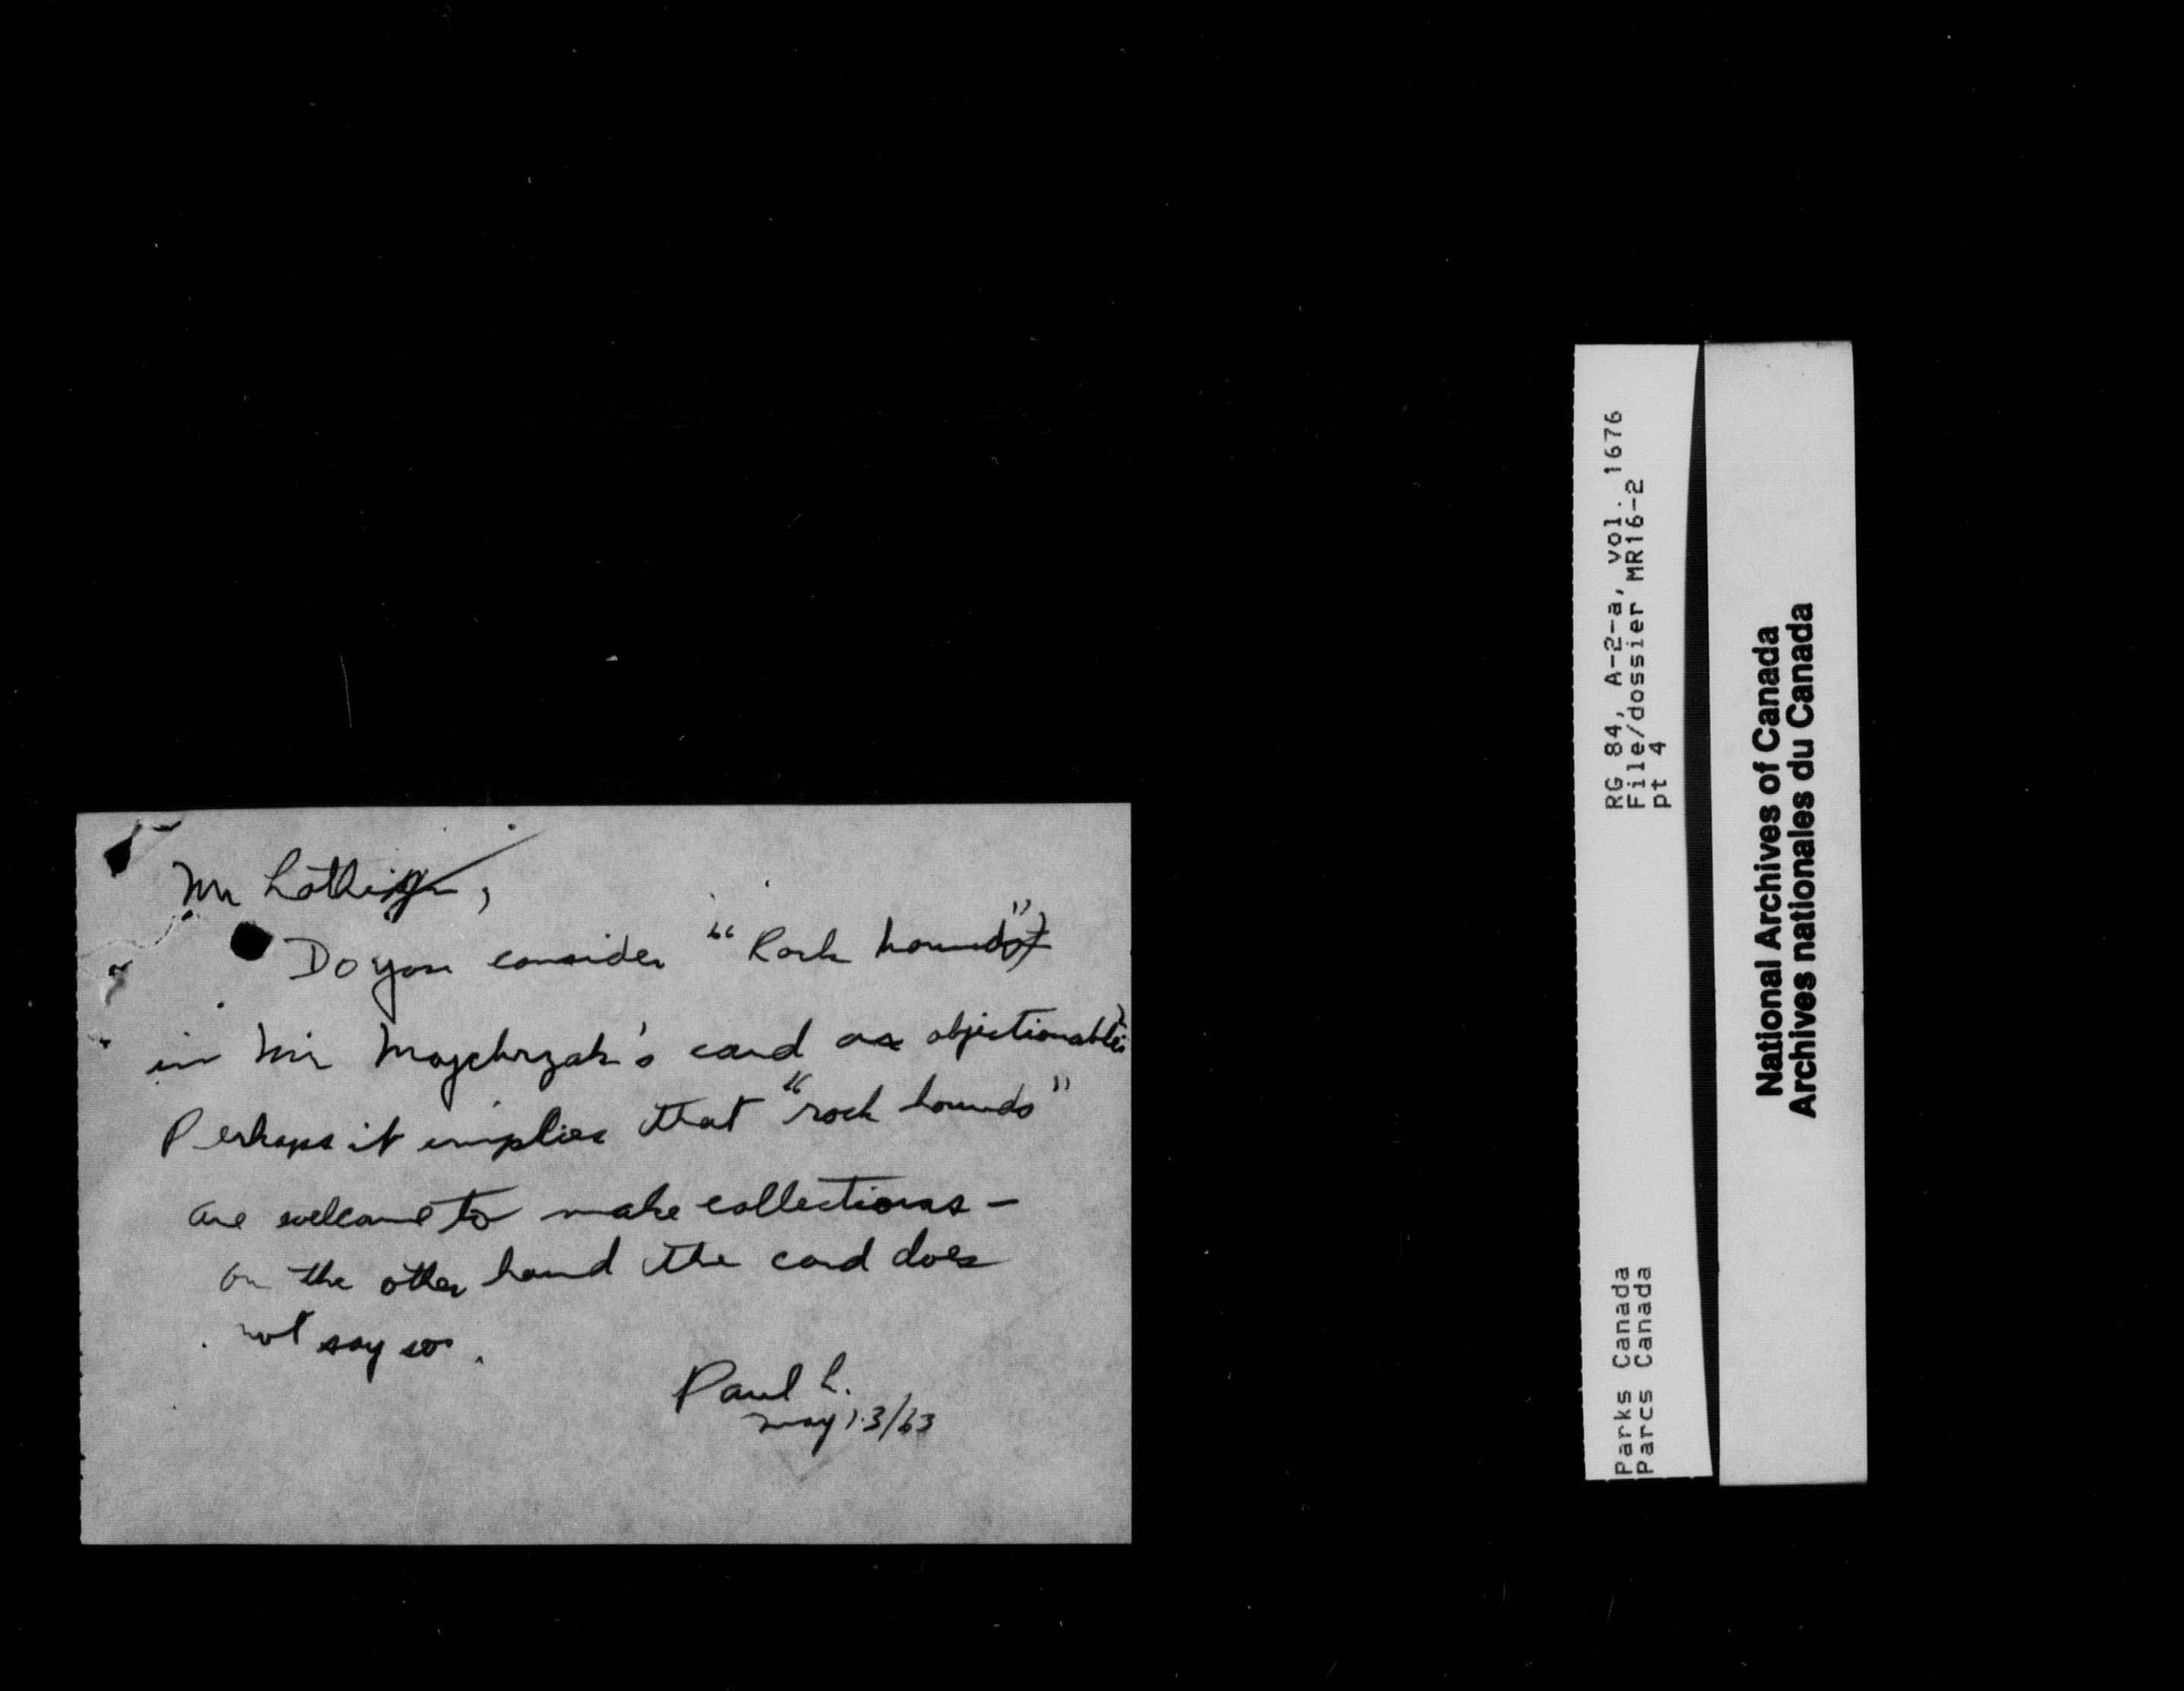 Mr Lothian,
Do you consider "Rock hounds"
in Mr Majchrzak's card as objectionable?
Perhaps it implies that "rock hounds"
are welcome to make collections -
on the other hand the card does
not say so.
Paul L.
May 13/63
RG 84, A-2-a, vol. 1676
File/dossier MR16-2
pt 4
Parks Canada
Parcs Canada
National Archives of Canada
Archives nationales du Canada